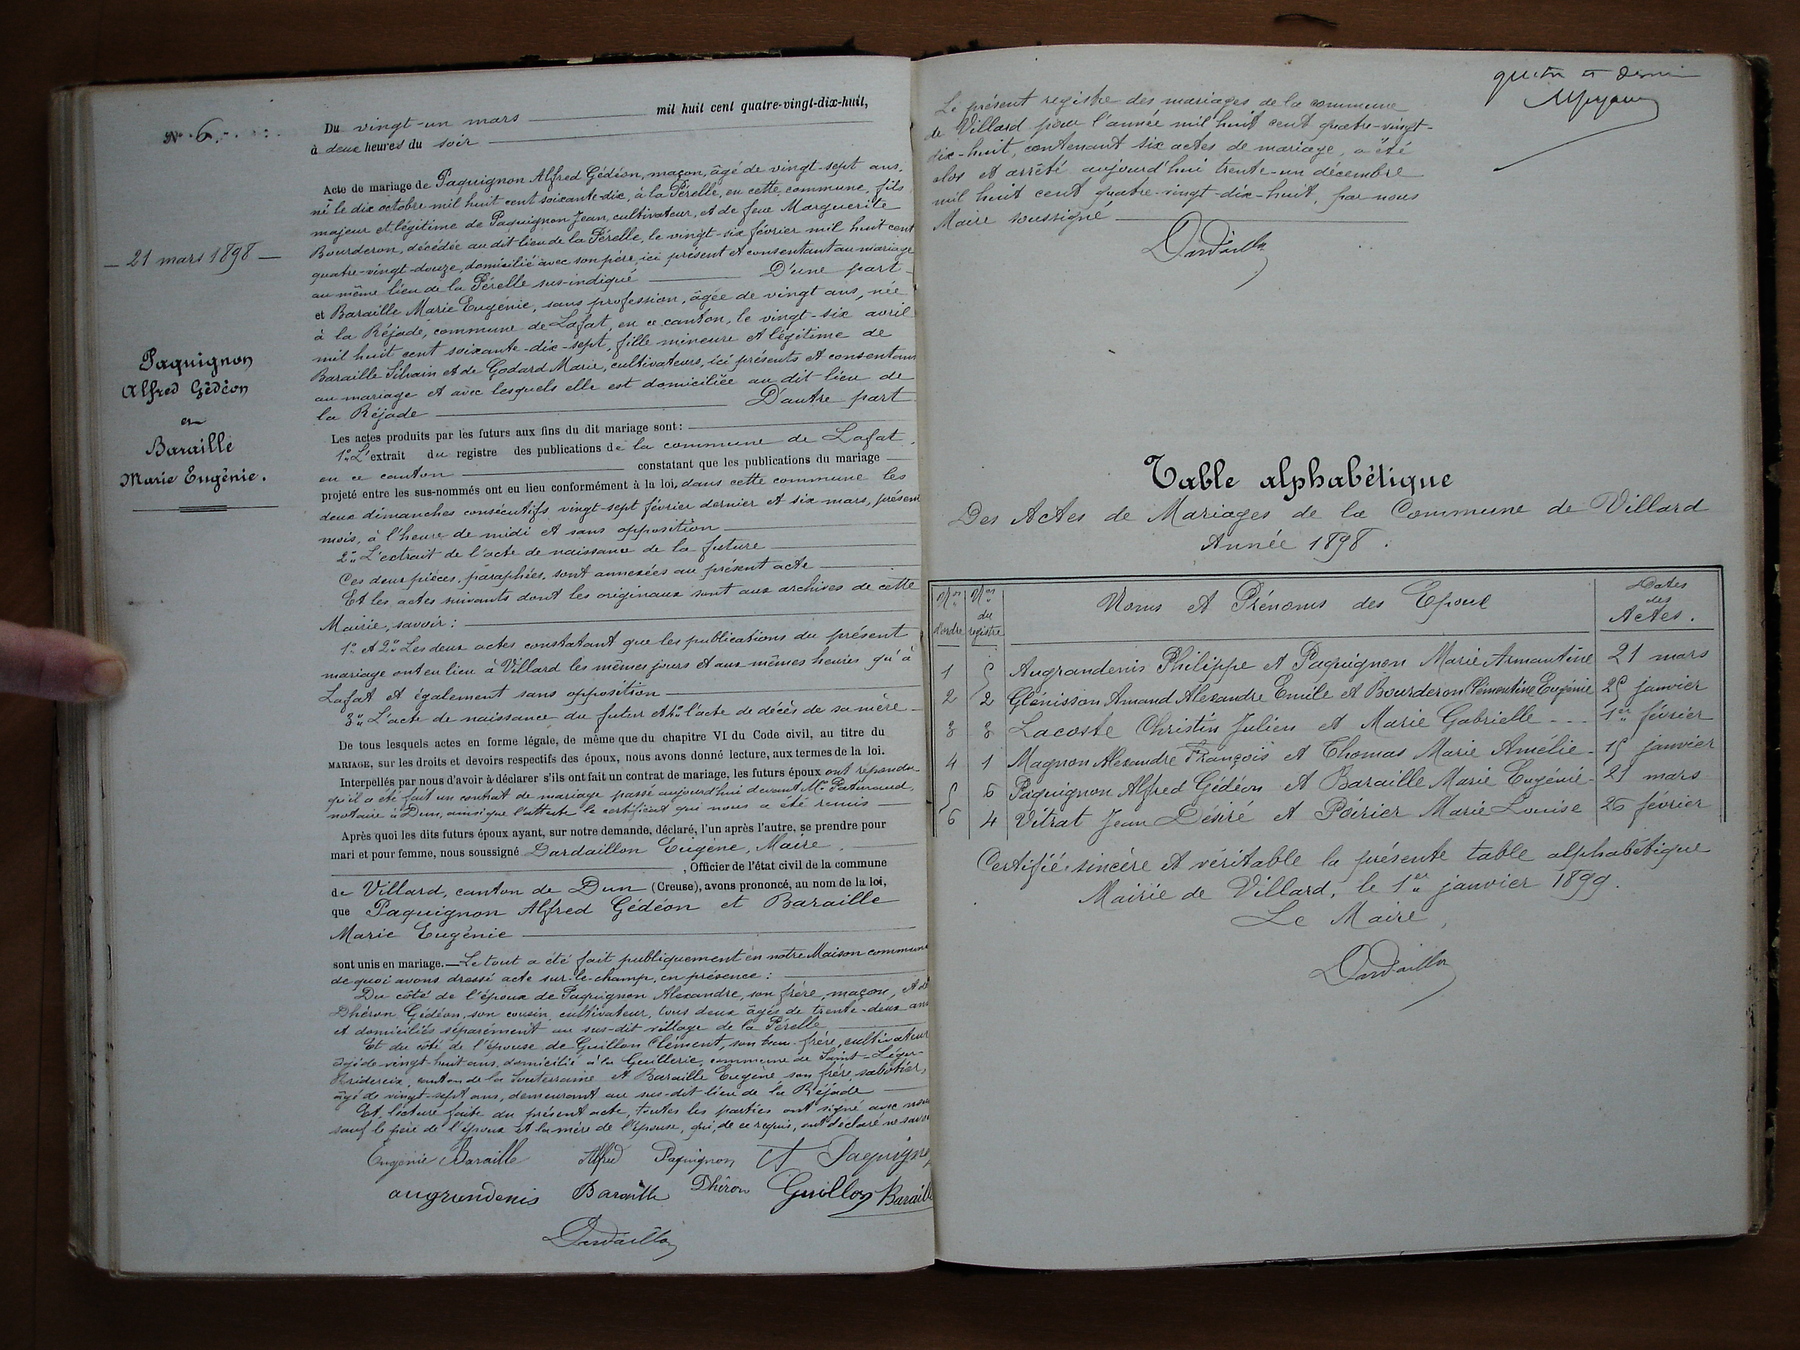 N° 6.
21 mars 1898
Paquignon
Alfred Gédéon
et
Baraille
Marie Eugénie.
Du vingt-un mars mil huit cent quatre-vingt-dix-huit,
à deux heures du soir
Acte de mariage de Paquignon Alfred Gédéon, maçon, âgé de vingt-sept ans,
né le dix octobre mil huit cent soixante-dix, à la Pérelle, en cette commune, fils
majeur et légitime de Paquignon Jean, cultivateur, et de feue Marguerite
Bourderon, décédée au dit lieu de la Pérelle, le vingt-six février mil huit cent
quatre-vingt-douze, domicilié avec son père, ici présent et consentant au mariage
au même lieu de la Pérelle sus-indiqué D'une part
et Baraille Marie Eugénie, sans profession, âgée de vingt ans, née
à la Réjade, commune de Lafat, en ce canton, le vingt-six avril
mil huit cent soixante-dix-sept, fille mineure et légitime de
Baraille Silvain et de Godard Marie, cultivateurs, ici présents et consentant
au mariage et avec lesquels elle est domiciliée au dit lieu de
la Réjade D'autre part
Les actes produits par les futurs aux fins du dit mariage sont :
1° L'extrait du registre des publications de la commune de Lafat,
en ce canton constatant que les publications du mariage
projeté entre les sus-nommés ont eu lieu conformément à la loi, dans cette commune les
deux dimanches consécutifs vingt-sept février dernier et six mars, présent
mois, à l'heure de midi et sans opposition
2° L'extrait de l'acte de naissance de la future
Ces deux pièces, paraphées, sont annexées au présent acte
Et les actes suivants dont les originaux sont aux archives de cette
Mairie, savoir :
1° et 2° Les deux actes constatant que les publications du présent
mariage ont eu lieu à Villard les mêmes jours et aux mêmes heures qu'à
Lafat et également sans opposition
3° L'acte de naissance du futur et 4° l'acte de décès de sa mère
De tous lesquels actes en forme légale, de même que du chapitre VI du Code civil, au titre du
MARIAGE, sur les droits et devoirs respectifs des époux, nous avons donné lecture, aux termes de la loi.
Interpellés par nous d'avoir à déclarer s'ils ont fait un contrat de mariage, les futurs époux ont répondu
qu'il a été fait un contrat de mariage passé aujourd'hui devant Me Paturaud,
notaire à Dun, ainsi que l'atteste le certificat qui nous a été remis
Après quoi les dits futurs époux ayant, sur notre demande, déclaré, l'un après l'autre, se prendre pour
mari et pour femme, nous soussigné Dardaillon Eugène, Maire
, Officier de l'état civil de la commune
de Villard, canton de Dun (Creuse), avons prononcé, au nom de la loi,
que Paquignon Alfred Gédéon et Baraille
Marie Eugénie
sont unis en mariage. — Le tout a été fait publiquement en notre Maison commune
de quoi avons dressé acte sur-le-champ, en présence :
Du côté de l'époux de Paquignon Alexandre, son frère, maçon, et de
Dhéron Gédéon, son cousin, cultivateur, tous deux âgés de trente-deux ans
et domiciliés séparément au sus-dit village de la Pérelle
Et du côté de l'épouse de Guillon Clément, son beau-frère, cultivateur
âgé de vingt-huit ans, domicilié à la Guillerie, commune de Saint-Léger-
Bridereix, canton de la Souterraine et Baraille Eugène son frère, sabotier,
âgé de vingt-sept ans, demeurant au sus-dit lieu de la Réjade
Et, lecture faite du présent acte, toutes les parties ont signé avec nous
sauf le père de l'époux et la mère de l'épouse, qui, de ce requis, ont déclaré ne savoir
Eugénie Baraille Alfred Paquignon A Paquignon
augrandenis Baraille Dhéron Guillon Baraille
Dardaillon
Le présent registre des mariages de la commune
de Villard pour l'année mil huit cent quatre-vingt-
dix-huit, contenant six actes de mariage, a été
clos et arrêté aujourd'hui trente-un décembre
mil huit cent quatre-vingt-dix-huit, par nous
Maire soussigné
Dardaillon
Table alphabétique
Des Actes de Mariages de la Commune de Villard
Année 1898.
Nos d'ordre Nos du registre Noms et Prénoms des Epoux Dates des Actes.
1 5 Augrandenis Philippe et Paquignon Marie Armantine 21 mars
2 2 Glénisson Amand Alexandre Emile et Bourderon Clémentine Eugénie 25 janvier
3 3 Lacoste Christin Julien et Marie Gabrielle 1er février
4 1 Magnon Alexandre François et Thomas Marie Amélie 15 janvier
5 6 Paquignon Alfred Gédéon et Baraille Marie Eugénie 21 mars
6 4 Vitrat Jean Désiré et Poirier Marie Louise 26 février
Certifiée sincère et véritable la présente table alphabétique
Mairie de Villard, le 1er janvier 1899.
Le Maire,
Dardaillon